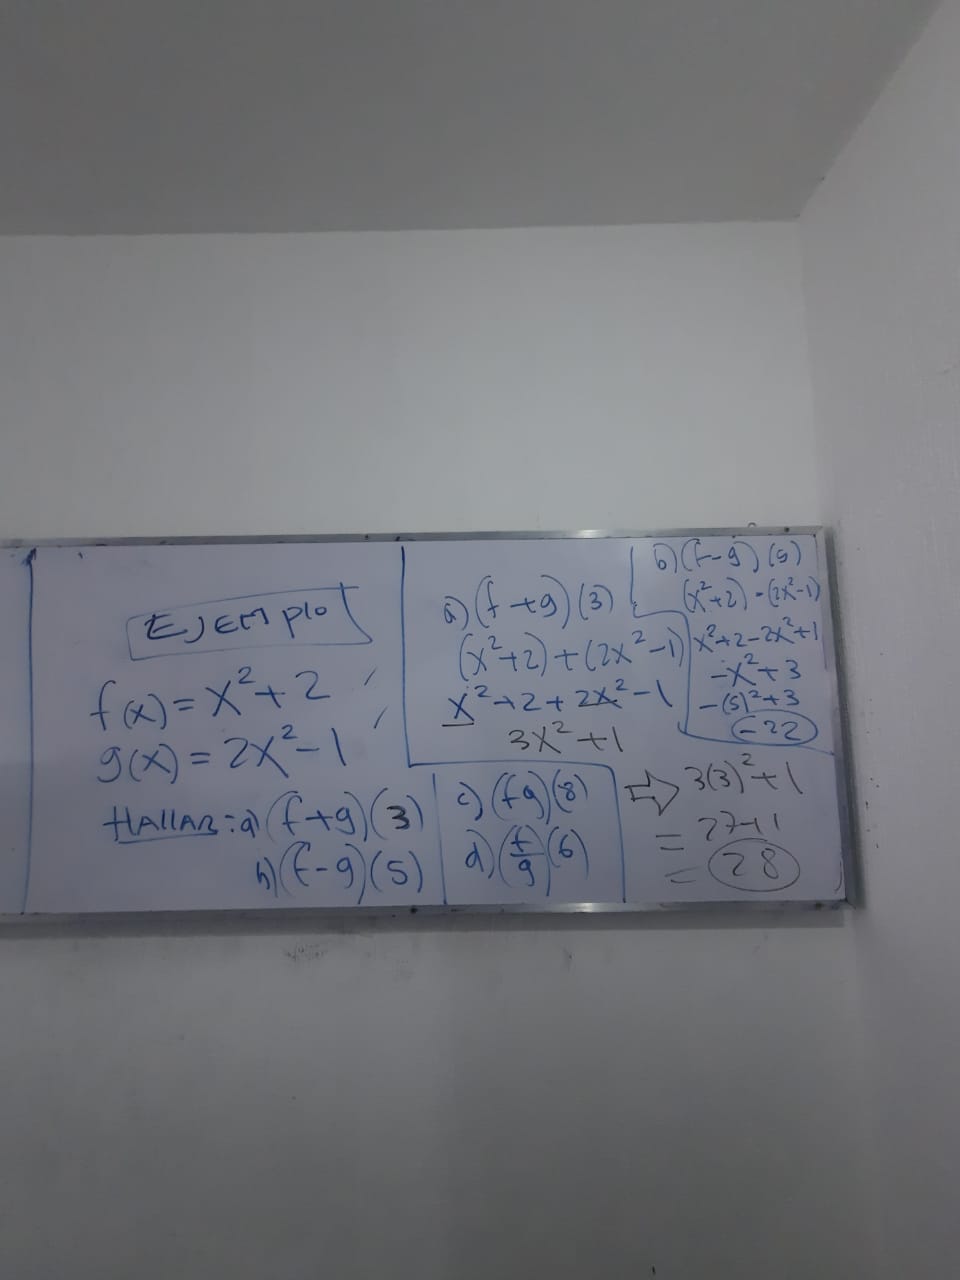 EJEMPlo
f(x) = x²+2
g(x) = 2x²-1
HALLAR: a) (f+g)(3)
b) (f-g)(5)
c) (fg)(8)
d) (f/g)(6)
a) (f+g)(3)
(x²+2)+(2x²-1)
x²+2+2x²-1
3x²+1
⇨ 3(3)²+1
= 27+1
= 28
b) (f-g)(5)
(x²+2)-(2x²-1)
x²+2-2x²+1
-x²+3
-(5)²+3
-22